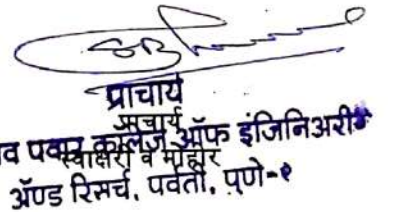 प्राचार्य
प्राचार्य
व पवार कॉलेज ऑफ इंजिनिअरींग
स्वाक्षरी व मोहोर
अ‍ॅण्ड रिसर्च, पर्वती, पुणे-९